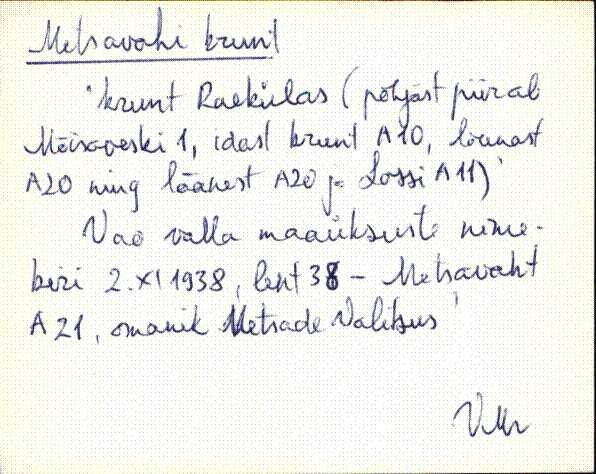 Metsavahi krunt
'krunt Raekülas (põhjast piirab
Mõisaveski 1, idast krunt A10, lõunast
A20 ning läänest A20 ja Lossi A11)'
Vao valla maaüksuste nime-
kiri 2.XI 1938, leht 38 – Metsavaht
A21, omanik Metsade Valitsus'